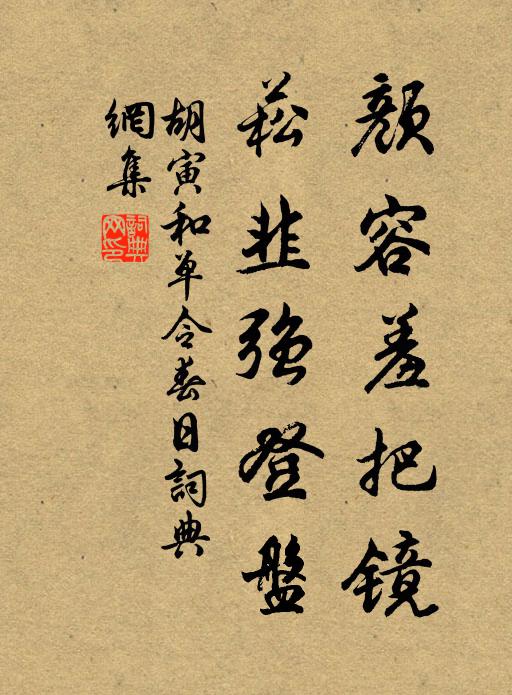 顏容羞把镜
菘韭强登盤
胡寅和单令春日詞典
網集
詞典
网印